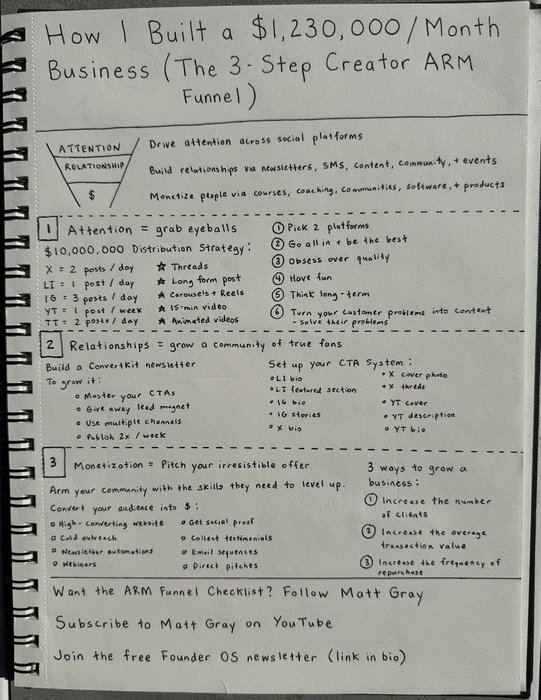 How I Built a $1,230,000/Month
Business (The 3-Step Creator ARM
Funnel)
ATTENTION
RELATIONSHIP
$
Drive attention across social platforms
Build relationships via newsletters, SMS, content, community, + events
Monetize people via courses, coaching, communities, software, + products
1 Attention = grab eyeballs
$10,000,000 Distribution Strategy:
X = 2 posts / day ★ Threads
LI = 1 post / day ★ Long form post
IG = 3 posts / day ★ Carousels + Reels
YT = 1 post / week ★ 15-min video
TT = 2 posts / day ★ Animated videos
① Pick 2 platforms
② Go all in + be the best
③ Obsess over quality
④ Have fun
⑤ Think long-term
⑥ Turn your customer problems into content
- solve their problems
2 Relationships = grow a community of true fans
Build a ConvertKit newsletter
To grow it:
o Master your CTAs
o Give away lead magnet
o Use multiple channels
o Publish 2x / week
Set up your CTA System:
o LI bio
o LI featured section
o IG bio
o IG stories
o X bio
• X cover photo
• X threds
• YT cover
• YT description
• YT bio
3 Monetization = Pitch your irresistible offer
Arm your community with the skills they need to level up.
Convert your audience into $:
o High-converting website
o Cold outreach
o Newsletter automations
o Webinars
o Get social proof
o Collect testimonials
o Email sequences
o Direct pitches
3 ways to grow a
business:
① Increase the number
of clients
② Increase the average
transaction value
③ Increase the frequency of
repurchase
Want the ARM Funnel Checklist? Follow Matt Gray
Subscribe to Matt Gray on YouTube
Join the free Founder OS newsletter (link in bio)